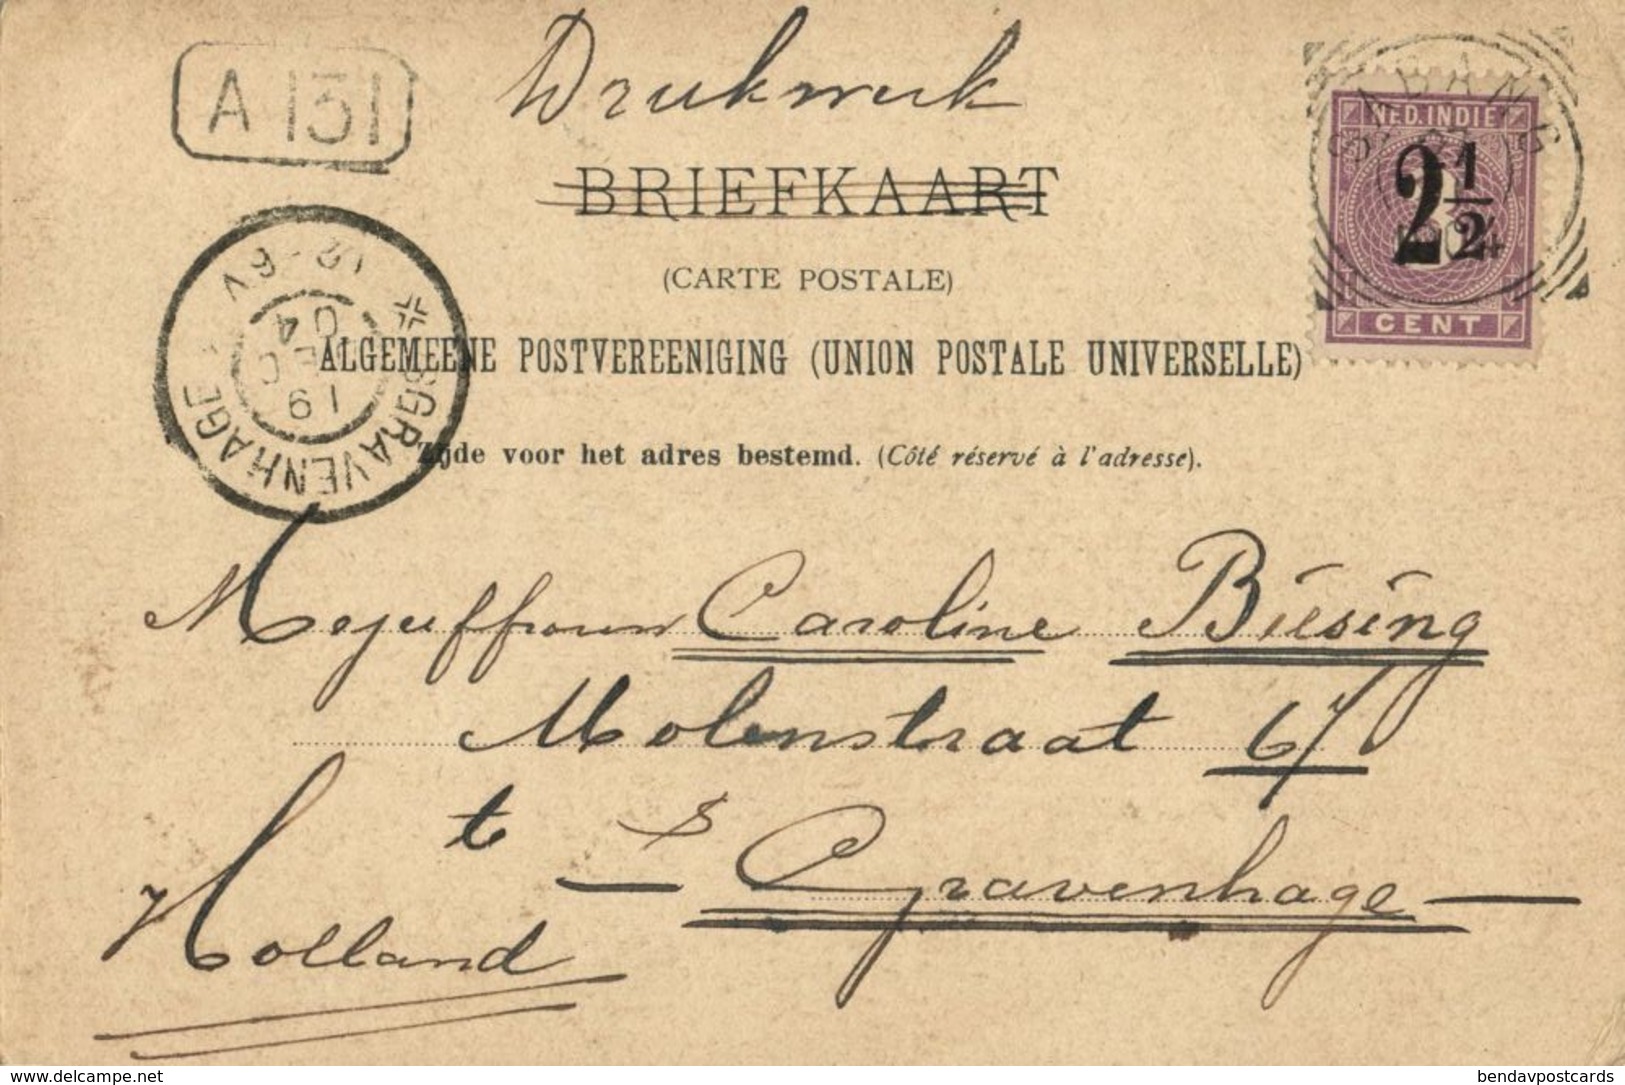 A 151
Drukwerk
NED. INDIE
SABANG
2 1/2
CENT
BRIEFKAART
(CARTE POSTALE)
ALGEMEENE POSTVEREENIGING (UNION POSTALE UNIVERSELLE)
'SGRAVENHAGE
12-6V
04
19
Zijde voor het adres bestemd. (Côté réservé à l'adresse).
Mejuffrouw Caroline Biesing
Molenstraat 67
te
s Gravenhage
Holland
www.delcampe.net
bendavpostcards